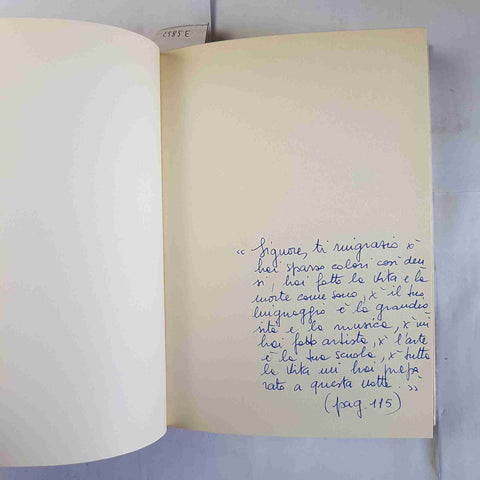 2585 E
“ Signore, ti ringrazio x'
hai sparso colori così den
si, hai fatto la vita e la
morte come sono, x' il tuo
linguaggio è la grandio
sità e la musica, x' mi
hai fatto artista, x' l'arte
è la tua scuola, x' tutta
la vita mi hai prepa
rato a questa notte. ”
(pag. 115)